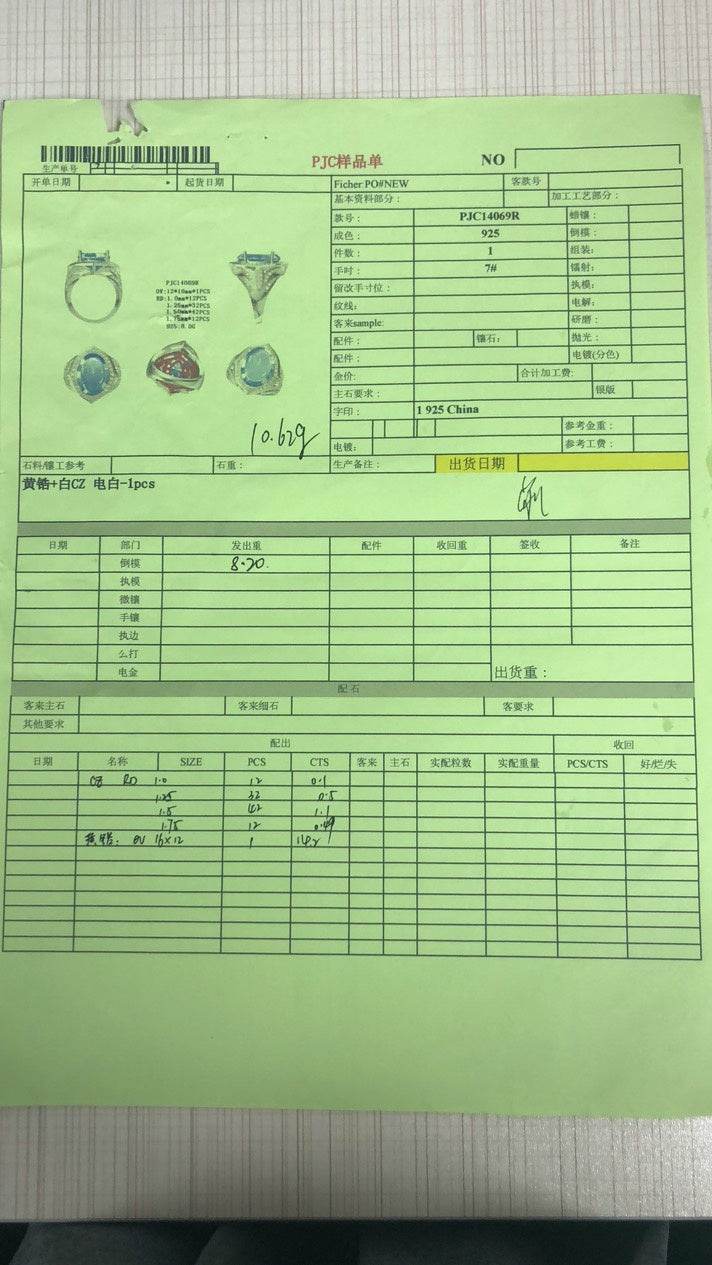 PJC样品单 NO
生产单号
开单日期 起货日期 Ficher:PO#NEW 客款号
基本资料部分： 加工工艺部分：
款号： PJC14069R 蜡镶：
成色： 925 倒模：
件数： 1 组装：
手吋： 7# 镭射：
留改手寸位： 执模：
纹线： 电解：
客来sample: 研磨：
配件： 镶石： 抛光：
配件： 电镀(分色)
金价： 合计加工费：
主石要求： 银版
字印： 1 925 China
参考金重：
电镀： 参考工费：
OV:12*16mm*1PCS
RD:1.0mm*12PCS
1.25mm*32PCS
1.50mm*42PCS
1.75mm*12PCS
925:8.0G
10.62g
石料/镶工参考 石重： 生产备注： 出货日期
黄锆+白CZ 电白-1pcs
日期 部门 发出重 配件 收回重 签收 备注
倒模 8.20.
执模
微镶
手镶
执边
么打
电金 出货重：
配石
客来主石 客来细石 客要求
其他要求
配出 收回
日期 名称 SIZE PCS CTS 客来 主石 实配粒数 实配重量 PCS/CTS 好/烂/失
CZ RD 1.0 12 0.1
1.25 32 0.5
1.5 42 1.1
1.75 12 0.49
黄锆： OV 16×12 1 14.2